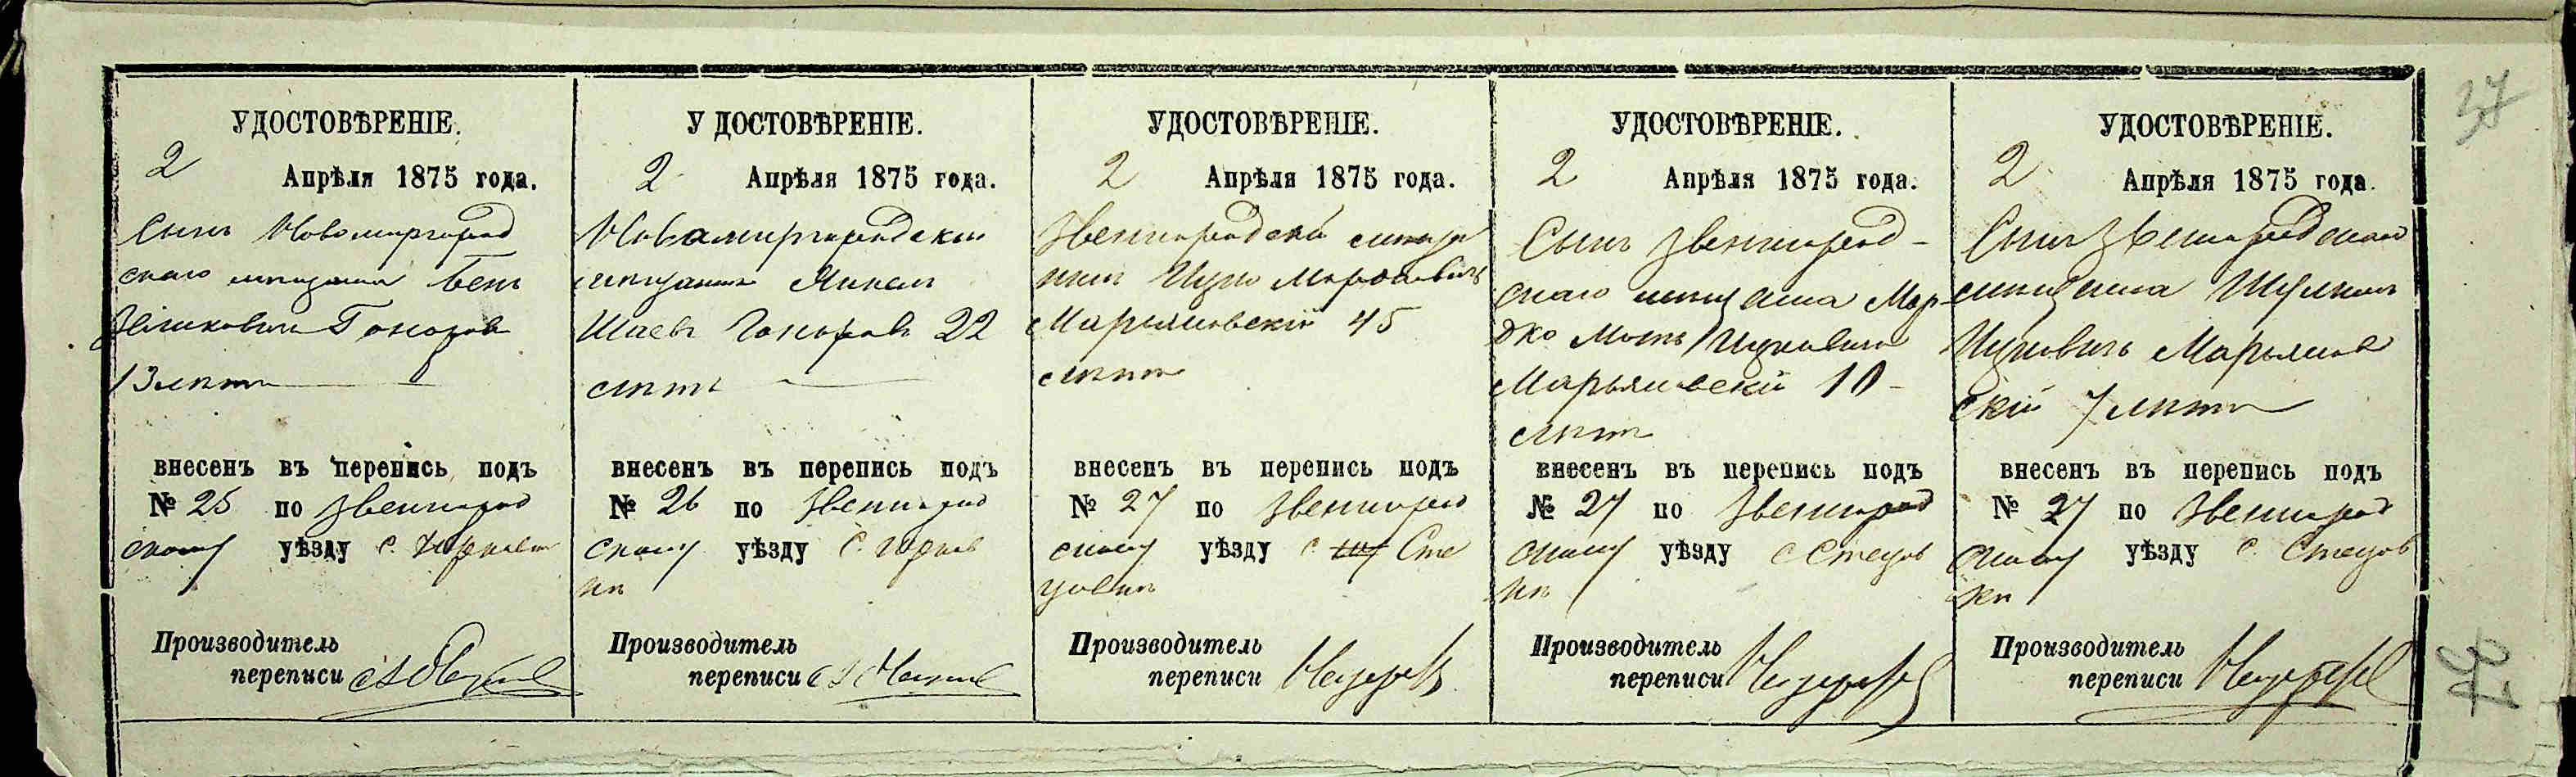 УДОСТОВѢРЕНІЕ.
2 Апрѣля 1875 года.
Сынъ Новомиргород
скаго мѣщанина Бень
Гоноров
13 лѣтъ
внесенъ въ перепись подъ
№ 25 по Звенигород
скому уѣзду с.
Производитель
переписи
У ДОСТОВѢРЕНІЕ.
2 Апрѣля 1875 года.
Новомиргородскій
мѣщанинъ Янкель
Шаевъ Гоноровъ 22
лѣтъ
внесенъ въ перепись подъ
№ 26 по Звенигород
скому уѣзду с.
кѣ
Производитель
переписи
УДОСТОВѢРЕНІЕ.
2 Апрѣля 1875 года.
Звенигородскій мѣща
нинъ Ицко Мордковичъ
Марьяновскій 45
лѣтъ
внесенъ въ перепись подъ
№ 27 по Звенигород
скому уѣзду с. Сте
цовкѣ
Производитель
переписи
УДОСТОВѢРЕНІЕ.
2 Апрѣля 1875 года.
Сынъ Звенигород-
скаго мѣщанина Мор-
дко Ицковичъ
Марьяновскій 10-
лѣтъ
внесенъ въ перепись подъ
№ 27 по Звенигород
скому уѣзду с Стецов
кѣ
Производитель
переписи
УДОСТОВѢРЕНІЕ.
2 Апрѣля 1875 года.
Сынъ Звенигородскаго
мѣщанина Шулимъ
Ицковичъ Марьянов
скій 7 лѣтъ
внесенъ въ перепись подъ
№ 27 по Звенигород
скому уѣзду с. Стецов
кѣ
Производитель
переписи
37